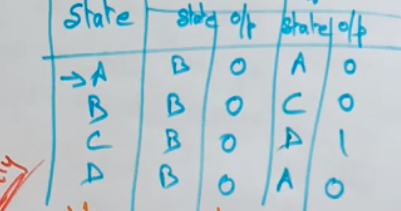 State state o/p state o/p
→A B 0 A 0
B B 0 C 0
C B 0 D 1
D B 0 A 0